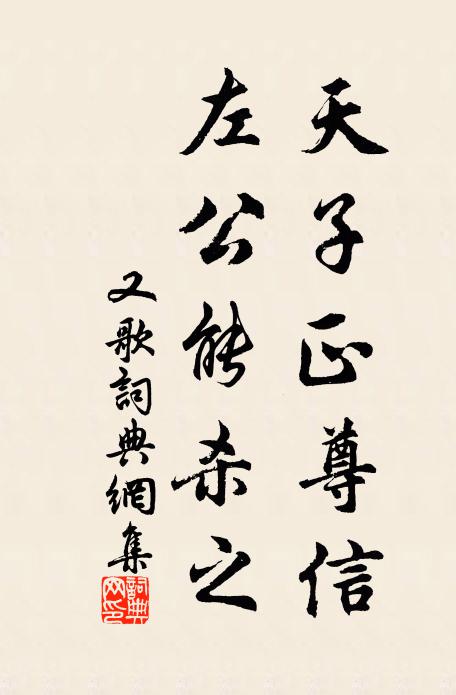 天子正尊信
左公能杀之
又歌詞典網集
詞典网印